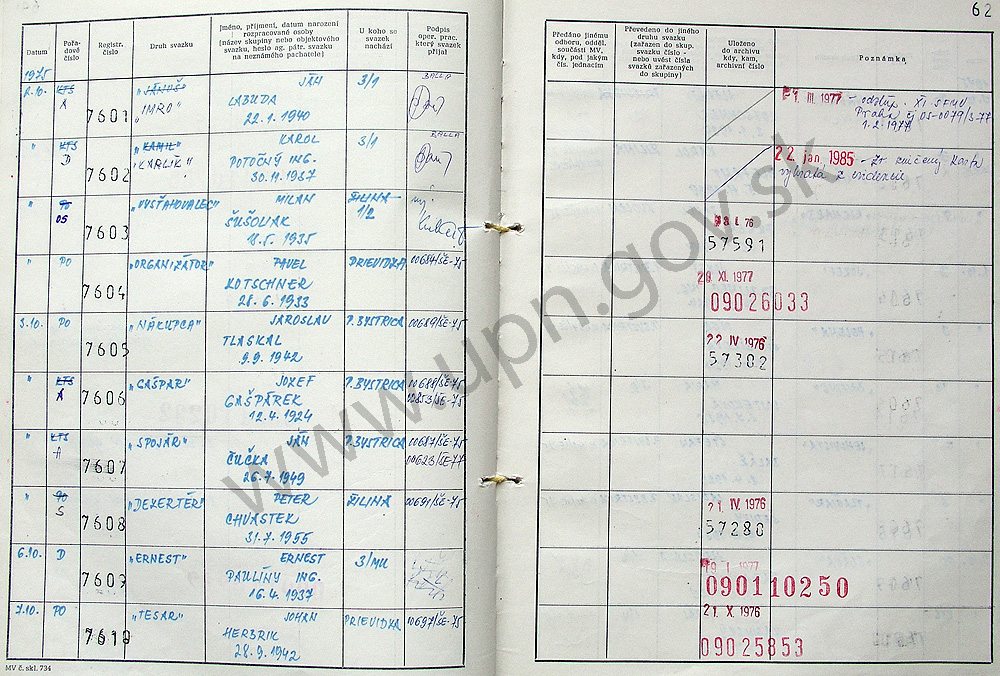 62
Datum
Pořa-
dové
číslo
Registr.
číslo
Druh svazku
Jméno, příjmení, datum narození
rozpracované osoby
(název skupiny nebo objektového
svazku, heslo ag. pátr. svazku
na neznámého pachatele)
U koho se
svazek
nachází
Podpis
oper. prac.
který svazek
přijal
Předáno jinému
odboru, odděl.
součásti MV,
kdy, pod jakým
čís. jednacím
Převedeno do jiného
druhu svazku
(zařazen do skup.
svazku číslo -
nebo uvést čísla
svazků zařazených
do skupiny)
Uloženo
do archivu
kdy, kam,
archivní číslo
Poznámka
1975
2.10. KTS A 7601 "JÁNOŠ" "IMRO" JÁN 3/1 BALLA
LABUDA
22.1.1940
1. III. 1977 - odstúp. XI SFMV
Praha čj 05-0079/3-77
1.2.1977
" D 7602 "KAMIL" "KARLÍK" KAROL 3/1 BALLA
POTOČNÝ ING.
30.11.1937
22. jan. 1985 - Zv zničený karta
vybratá z evidencie
" PO OS 7603 "VYSŤAHOVALEC" MILAN ŽILINA
1/2
ŠUŠOLIAK
18.5.1935
I. 76
57591
" PO 7604 "ORGANIZÁTOR" PAVEL PRIEVIDZA 00684/ŠE-75
KOTSCHNER
28.6.1933
28. XI. 1977
09026033
3.10. PO 7605 "NÁKUPCA" JAROSLAV P.BYSTRICA 00689/ŠE-75
TLASKAL
9.9.1942
22 IV 1976
57302
" KTS A 7606 "GAŠPAR" JOZEF P.BYSTRICA 00688/ŠE-75
GAŠPÁREK 02853/ŠE-75
12.4.1924
" KTS A 7607 "SPOJÁR" JÁN P.BYSTRICA 00687/ŠE-75
ČUČKA 00623/ŠE-77
26.7.1949
" PO S 7608 "DEZERTÉR" PETER ŽILINA 00691/ŠE-75
CHVASTEK
31.7.1955
21. IV. 1976
57280
6.10. D 7609 "ERNEST" ERNEST 3/MU
PAULÍNY ING.
16.4.1937
19. I. 1977
090110250
7.10. PO 7610 "TESAR" JOHAN PRIEVIDZA 00697/ŠE-75
HERBRIK
28.9.1942
21. X. 1976
09025853
MV č. skl. 734
www.upn.gov.sk